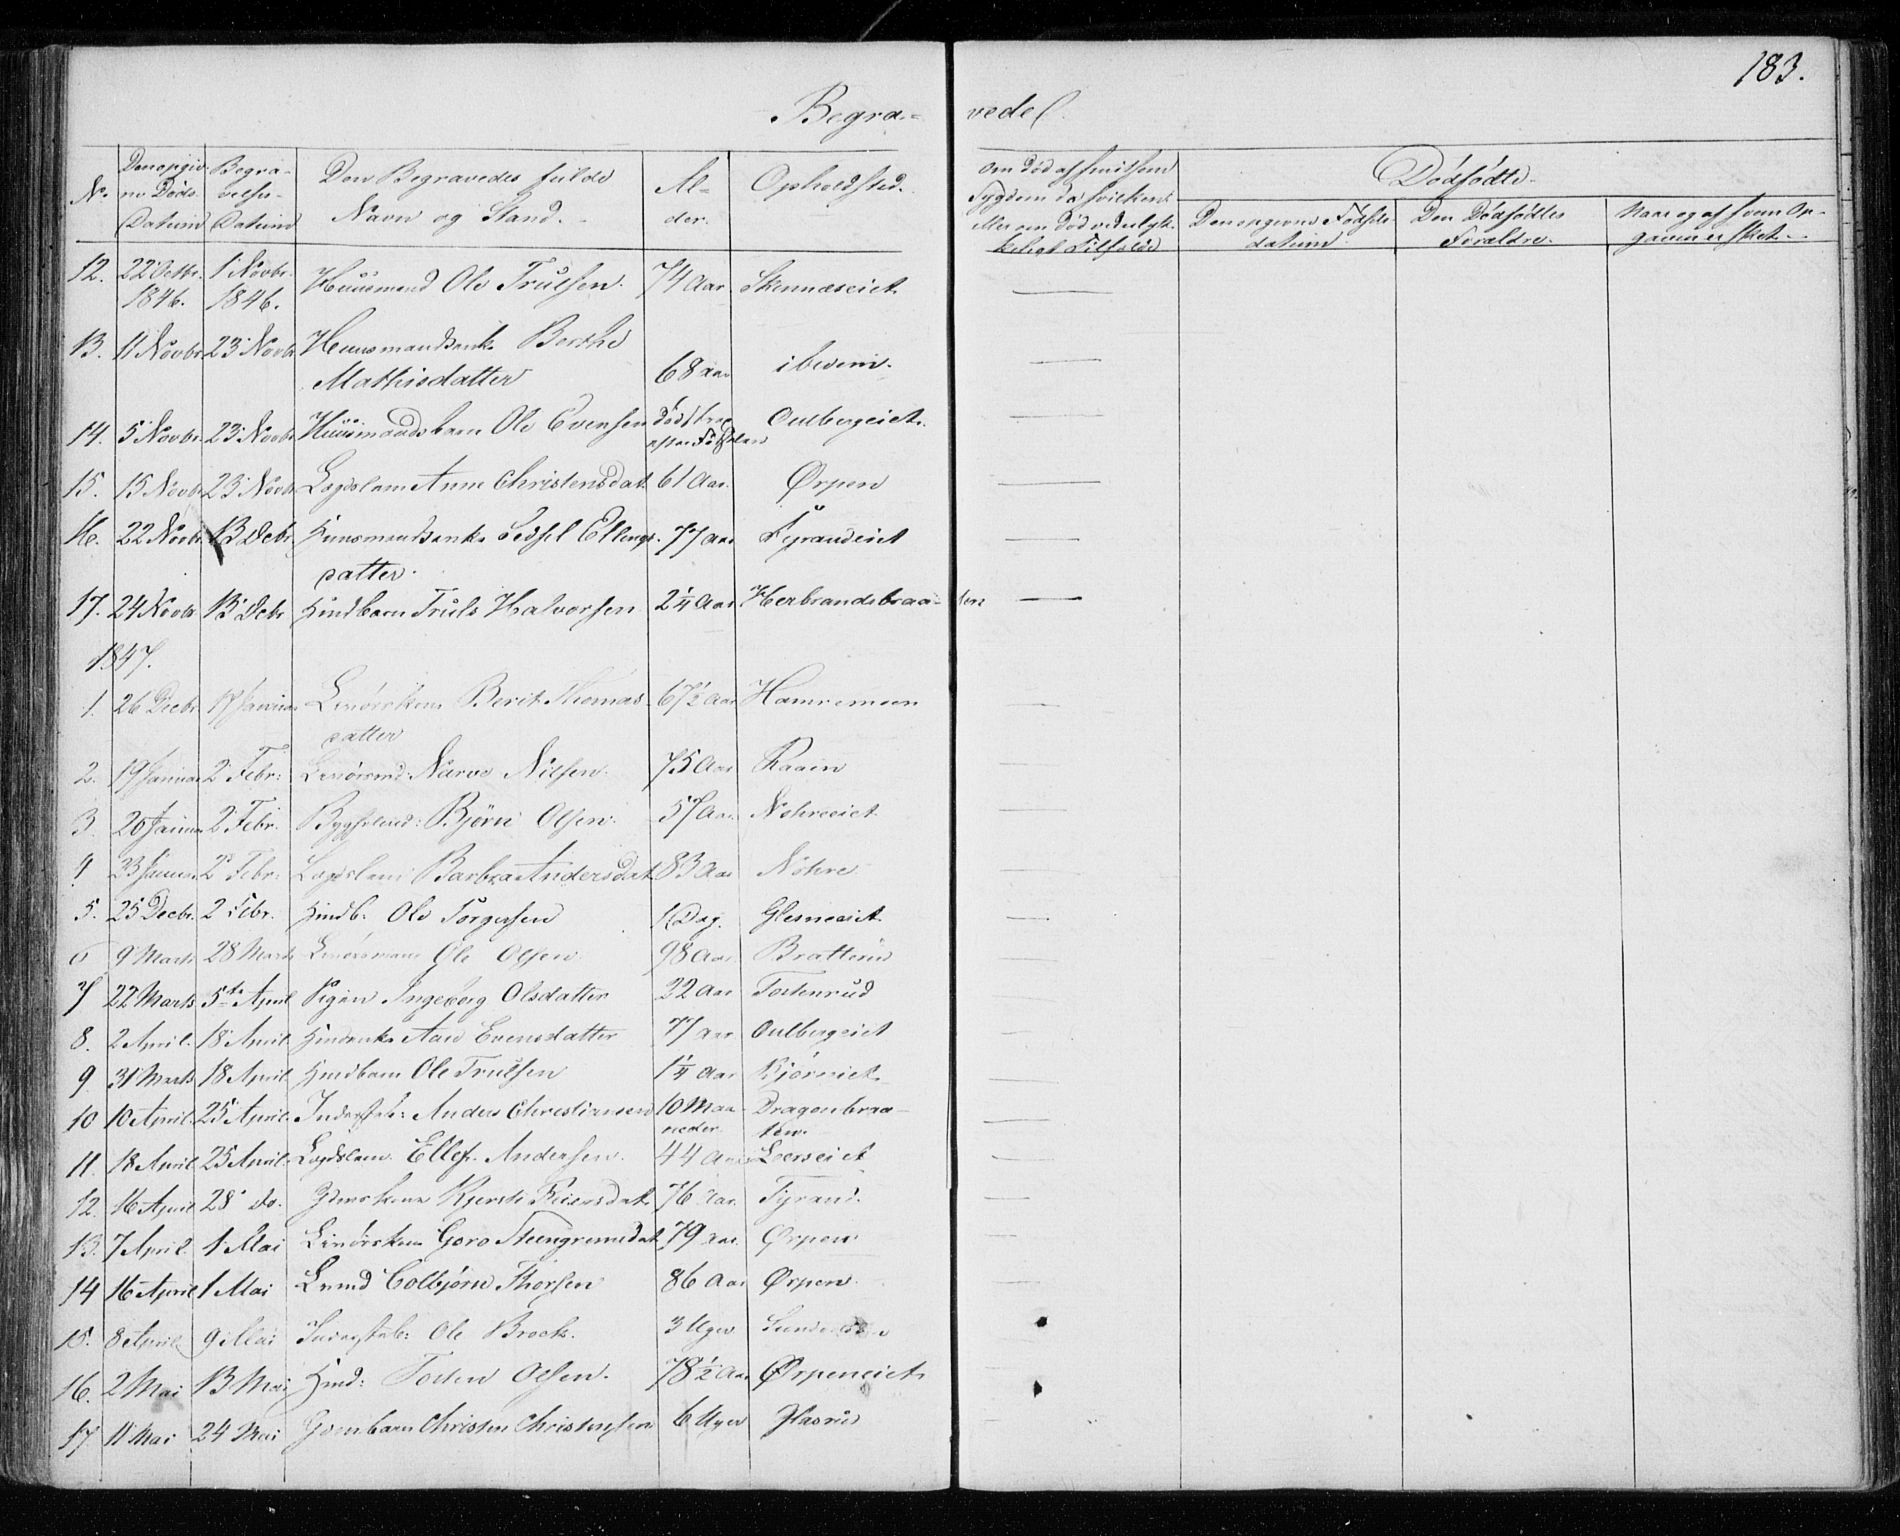 183.
Begra= vede
No. Den opgivne Døds Datum Begravelses Datum Den Begravedes fulde Navn og Stand. Alder. Opholdsted. Om død af smitsom Sygdom da hvilken? eller om død ved ulykkeligt Tilfælde Dødfødte.
Den opgivne Fødsels datum Den Dødfødtes Forældre. Naar og af hvem Opgaven er skeet.
12. 22 Octbr. 1846. 1 Novbr. 1846. Huusmand Ole Trulsen. 74 Aar Skinnæseiet —
13. 11 Novbr 23 Novbr Huusmandsenke Berthe
Mathisdatter 68 aar ibidem. —
14. 5 Novbr. 23 Novbr Huusmandsbarn Ole Evensen død strax efter Fødselen Oulbergeiet. —
15. 15 Novbr 23 Novbr Anne Christensdat. 61 Aar. Ørpen —
16. 22 Novbr. 13 Decbr. Huusmandsenke Sidsel Ellings- 77 Aar Fyrandeiet —
datter.
17. 24 Novbr 13 Decbr Hmdbarn Truls Halvorsen 2¼ Aar Herbrandsbraa- ten —
1847.
1. 26 Decbr. 17 Januar Berit Thomas- 67½ Aar Hamremoen —
datter
2. 19 Januar 2 Febr: Narve Nilsen. 75 Aar Raaen —
3. 20 Januar 2 Febr. Bjørn Olsen. 57 Aar. Nohreeiet —
4 23 Januar 2 Febr: Barbra Andersdat. 83 Aar Nohre —
5. 25 Decbr. 2 Febr. Hmdb: Ole Torgersen 1 Dag. Glesneeiet —
6 9 Marts 28 Marts Ole Olsen 98 Aar Bratterud —
7 22 Marts. 5te April Pigen Ingeborg Olsdatter 22 Aar Tostenrud —
8. 2 April. 18 April. Hmdenke Aase Evensdatter 77 aar Oulbergeiet —
9 31 Marts 18 April Hmdbarn Ole Trulsen 1¼ Aar Bjørneiet —
10 10 April. 25 April. Indersteb: Anders Christiansen 10 Maa- neder Dragenbraa- ten. —
11. 18 April 25 April. Ellef Andersen. 44 Aar Leerseiet —
12. 16 April 28 do. Kjersti Reiersdat. 76 Aar. Tyrand. —
13. 7 April. 1 Mai Goro Steengrimsdat. 79 Aar. Ørpen —
14 16 April 1 Mai Colbjørn Thorsen 86 Aar Ørpen. —
15. 8 April 9 Mai Inderstb: Ole Brock. 3 Uger —
16. 2 Mai 13 Mai Hmd: Tosten Olsen. 78½ Aar Ørpeneiet —
17 11 Mai 24 Mai Christen Christensen 6 Uger Hasrud —